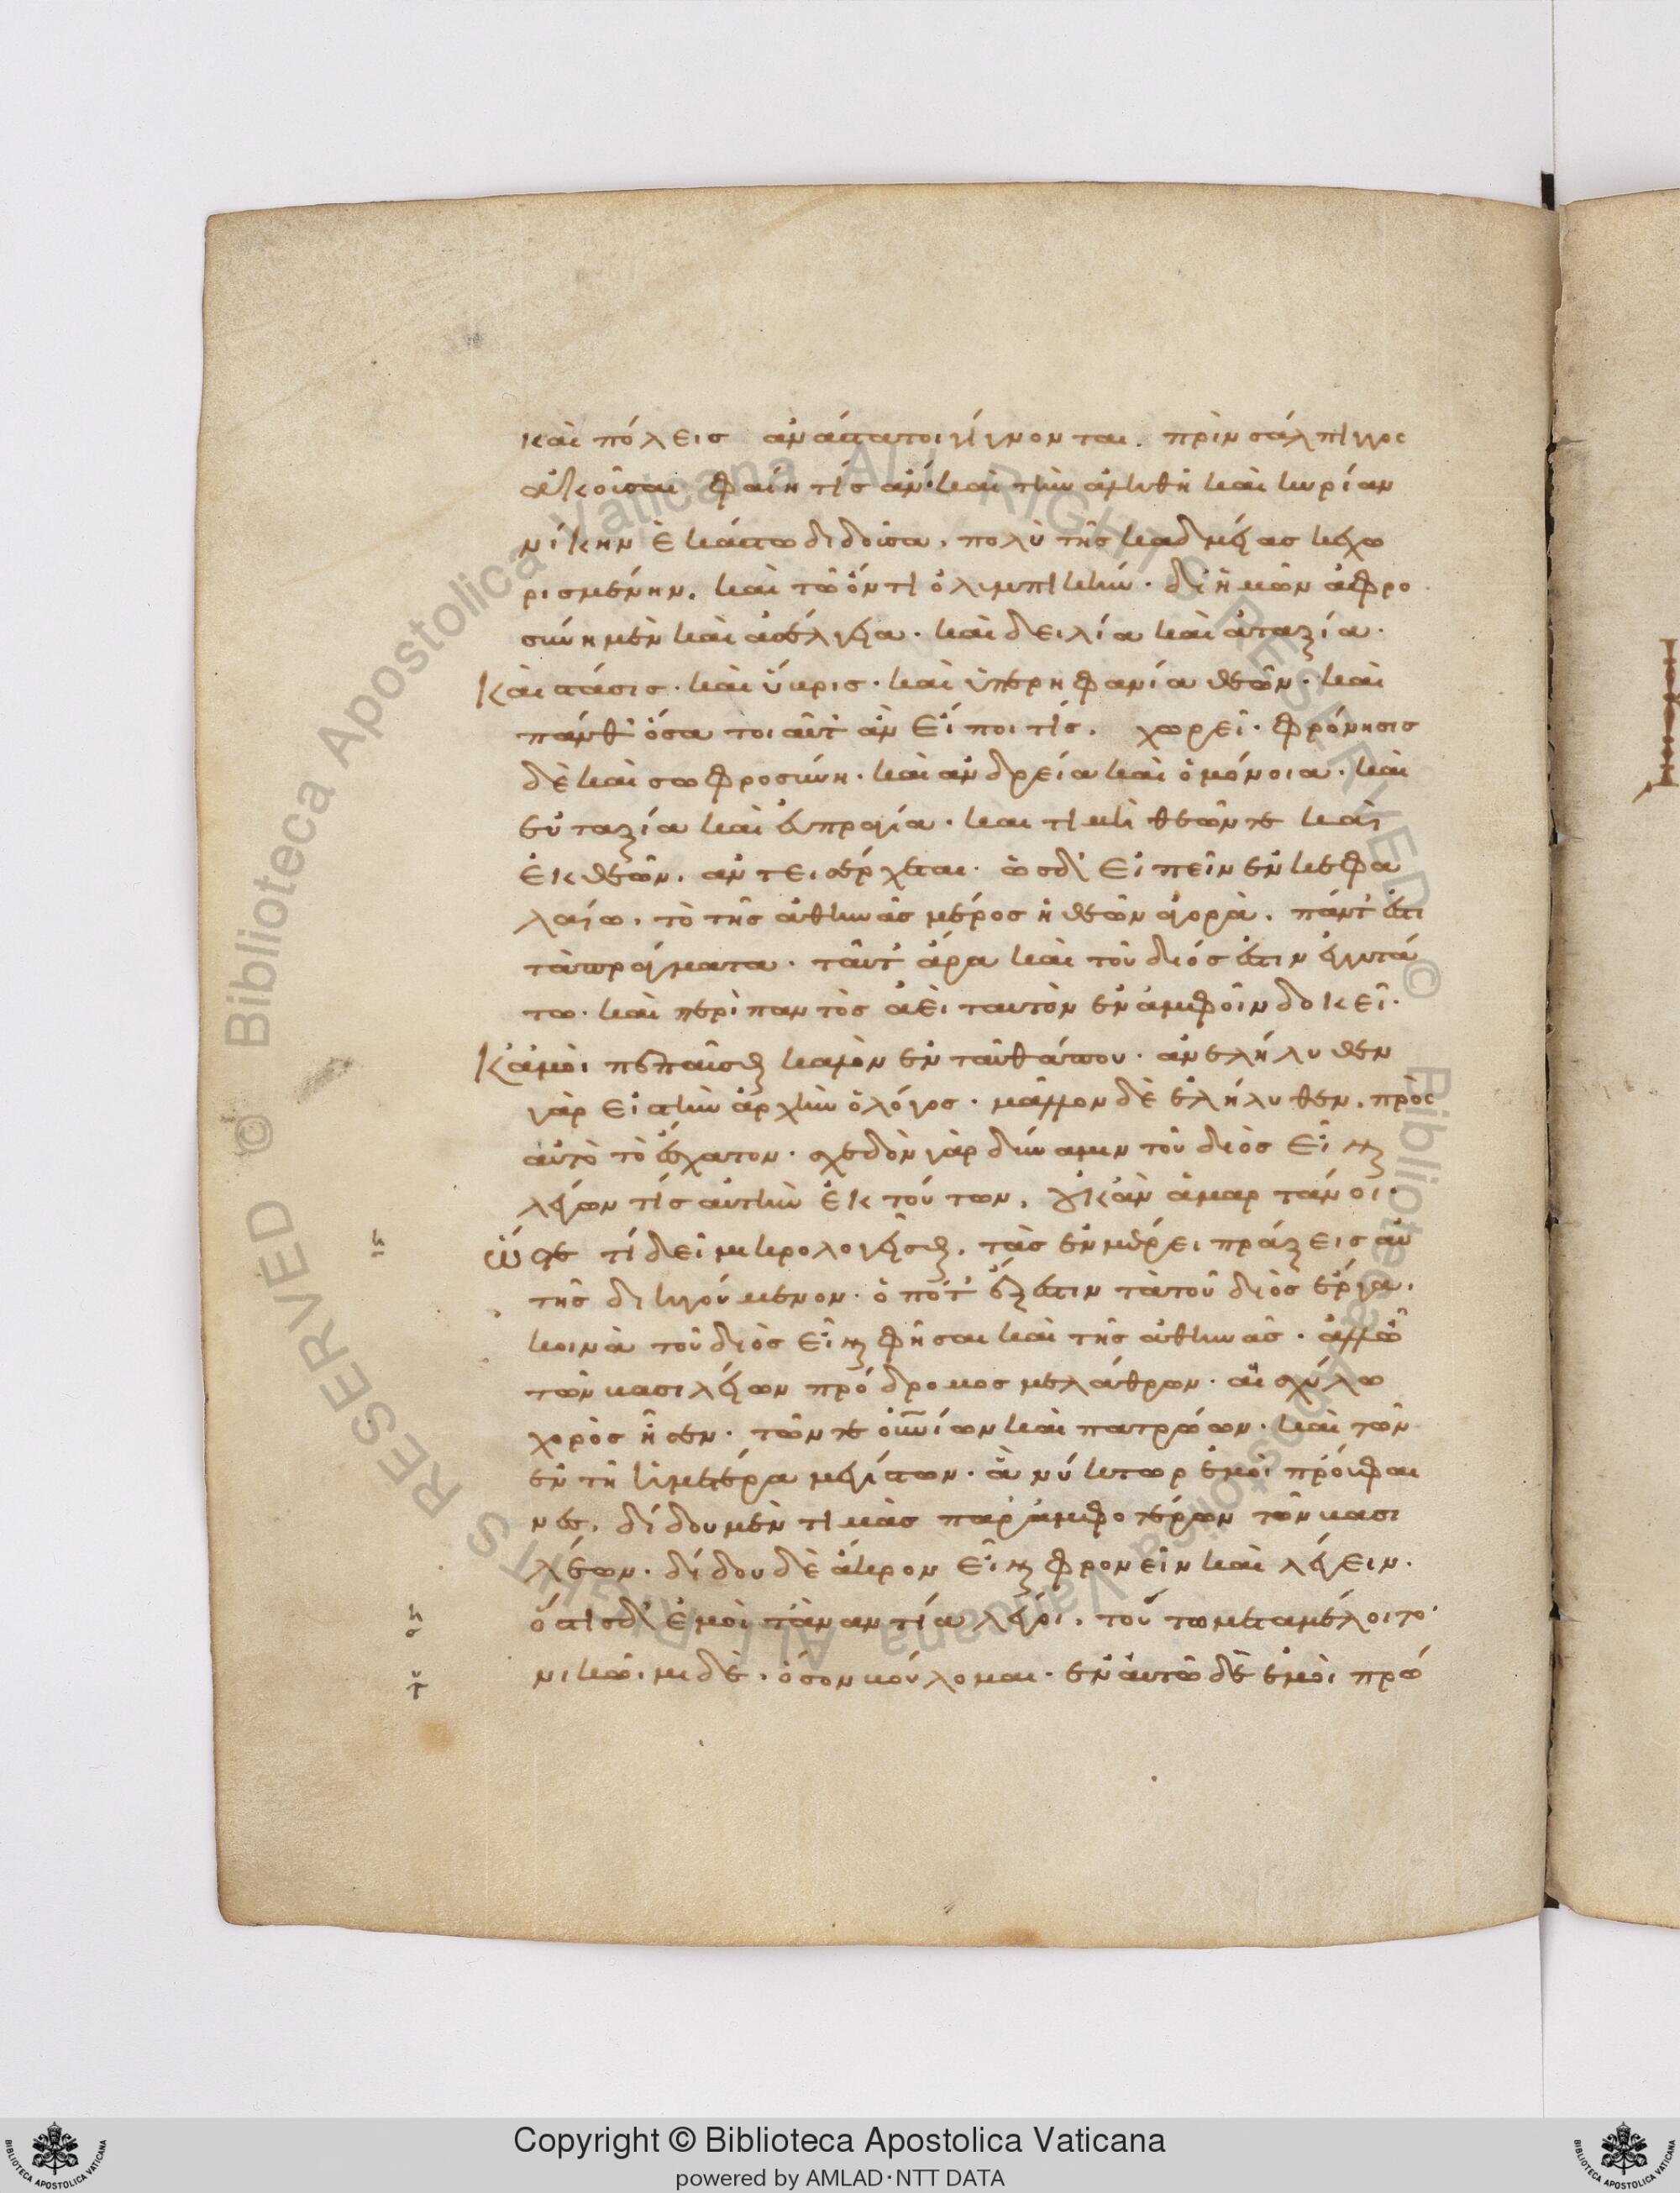 καὶ πόλεις ἀνάστατοι γίγνονται. πρὶν σάλπιγγος
ἀκοῦσαι φαίη τίς ἄν· καὶ τὴν ἀληθῆ καὶ κυρίαν
νίκην ἑκάστω διδοῦσα. πολὺ τῆς καδμείας κεχω
ρισμένην. καὶ τῶ ὄντι ὀλυμπικήν. δι' ἣν ἀφρο
σύνη μὲν καὶ ἀσέλγεια. καὶ δειλία καὶ ἀταξία.
Καὶ στάσις. καὶ ὕβρις. καὶ ὑπερηφανία θεῶν. καὶ
πάνθ' ὅσα τοιαῦτ' ἂν εἴποι τίς. χωρεῖ. φρόνησις
δὲ καὶ σωφροσύνη. καὶ ἀνδρεία καὶ ὁμόνοια. καὶ
εὐταξία καὶ εὐπραγία. καὶ τιμὴ θεῶν τε καὶ
ἐκ θεῶν. ἀντεισέρχεται. ὡς δ' εἰπεῖν ἐν κεφα
λαίω. τὸ τῆς ἀθηνᾶς μέρος ἡ θεῶν ἀγορὰ. πάντ' ἐστι
τὰ πράγματα. ταῦτ' ἄρα καὶ τοῦ διός ἐστιν ἐγγυτά
τω. καὶ περὶ παντὸς ἀεὶ ταυτὸν ἐν ἀμφοῖν δοκεῖ.
Κἀμοὶ πεπαῦσθαι καλὸν ἐνταῦθά που. ἀνελήλυθεν
γὰρ εἰς τὴν ἀρχὴν ὁ λόγος. μᾶλλον δὲ ἐλήλυθεν. πρὸς
αὐτὸ τὸ ἔσχατον. σχεδὸν γὰρ δύναμιν τοῦ διὸς εἶναι
λέγων τίς αὐτὴν ἐκ τούτων, οὐκ ἂν ἁμαρτάνοι.
ὥστε τί δεῖ μικρολογεῖσθαι. τὰς ἐν μέρει πράξεις αὐ
τῆς διηγούμενον. ὁπότ' ἔξεστιν τὰ τοῦ διὸς ἔργα.
κοινὰ τοῦ διὸς εἶναι φῆσαι καὶ τῆς ἀθηνᾶς. ἀλλ' ὦ
τῶν βασιλείων πρόδρομος μελάθρων. αἰσχύλω
χορὸς ᾖσεν. τῶν τε οὐνίων καὶ πατρώων. καὶ τῶν
ἐν τῆ ἡμετέρα μεγίστων. ἃ νύκτωρ ἐμοὶ πρόυφαι
νες. δίδου μὲν τιμὰς παρ' ἀμφοτέρων τῶν βασι
λέων. δίδου δὲ ἄκρον εἶναι φρονεῖν καὶ λέγειν.
ὅστις δ' ἐμοὶ τἀναντία λέγοι. τούτω μεταμέλοιτο.
νικώιμι δὲ. ὅσον βούλομαι. ἐν αὑτῶ δὲ ἐμοὶ πρώ
Copyright © Biblioteca Apostolica Vaticana
powered by AMLAD·NTT DATA